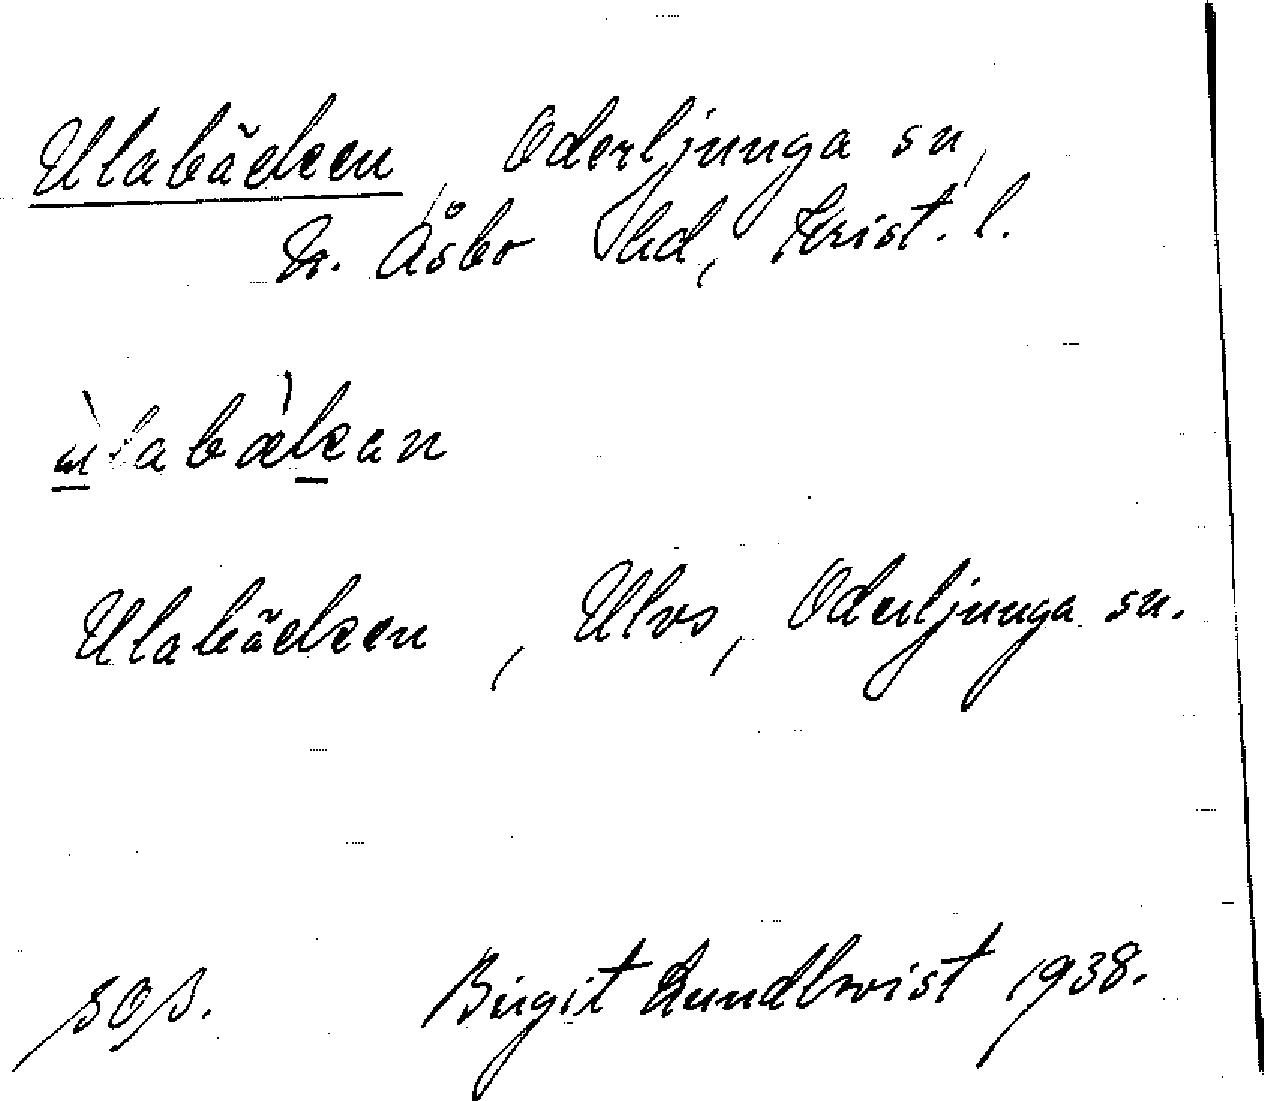 Ulabäcken, Oderljunga sn,
N. Åsbo hd, Krist. l.
ùlabæ̀kan
Ulabäcken, Ulvs, Oderljunga sn.
Birgit Lundkvist 1938.